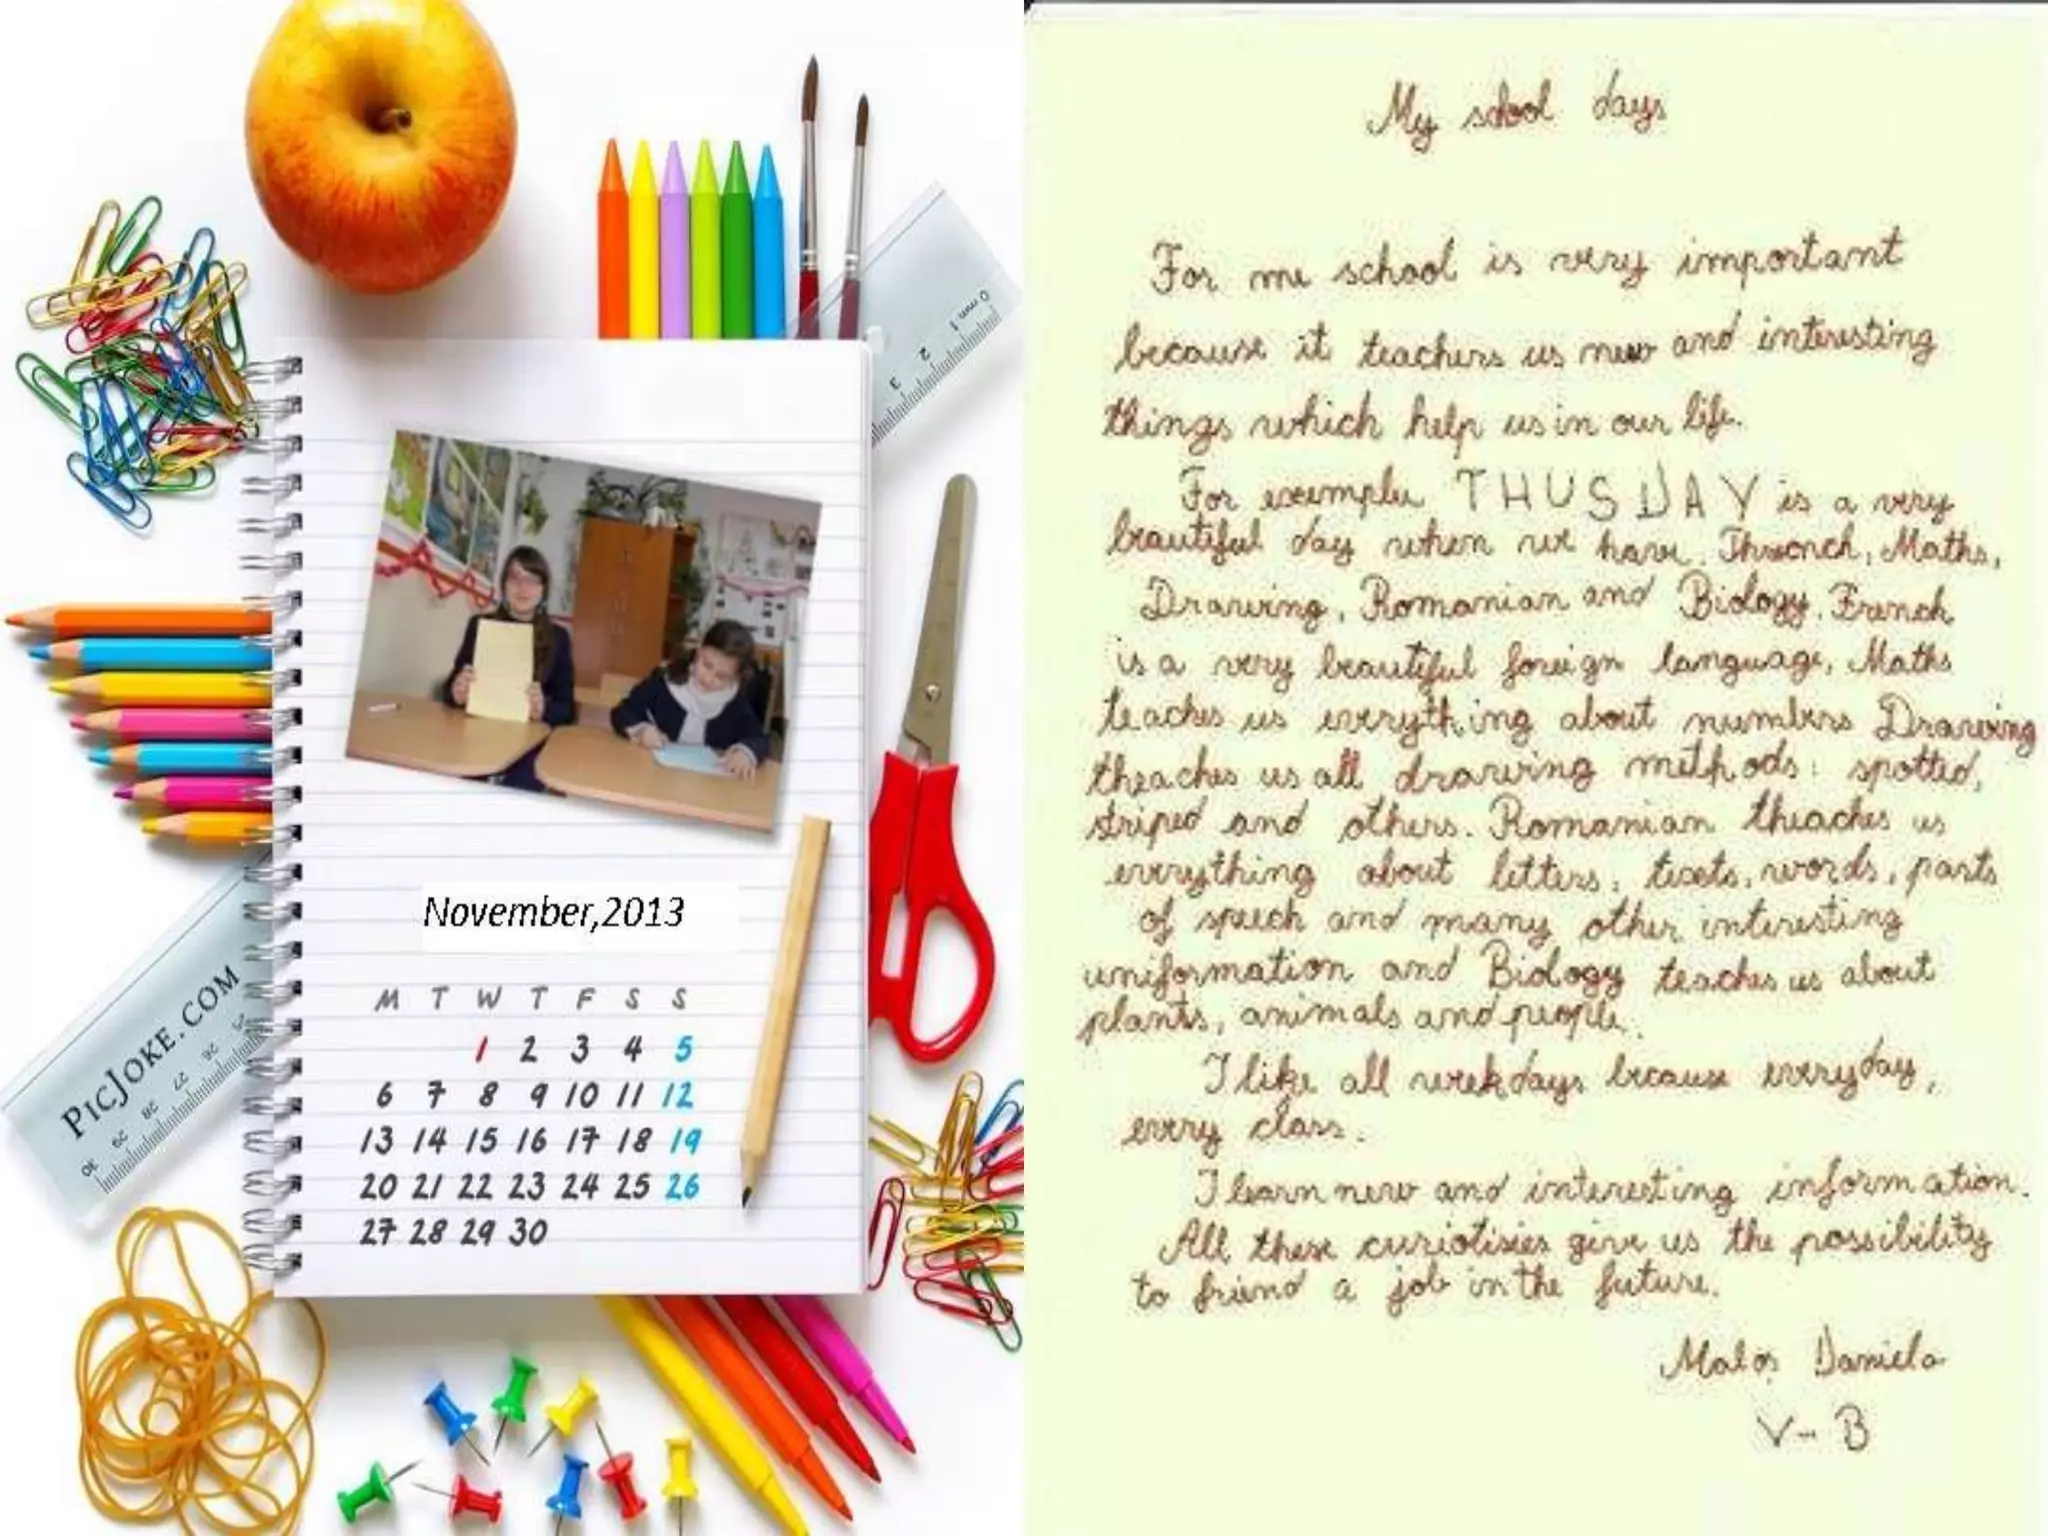 November,2013
M T W T F S S
1 2 3 4 5
6 7 8 9 10 11 12
13 14 15 16 17 18 19
20 21 22 23 24 25 26
27 28 29 30
PICJOKE.COM
0 mm 1
2
3
27
28
29
30
My school days
For me school is very important
because it teachers us new and interesting
things which help us in our life.
For exemple THUSDAY is a very
beautiful day when we have Maths,
Drawing, Romanian and Biology. French
is a very beautiful foreign language, Maths
teaches us everything about numbers Drawing
theaches us all drawing methods: spotted,
striped and others. Romanian theaches us
everything about letters, texts, words, parts
of speech and many other interesting
uniformation and Biology teaches us about
plants, animals and people.
I like all weekdays because everyday,
every class.
I learn new and interesting information.
All these curiotisies give us the possibility
to friend a job in the future.
Daniela
V-B